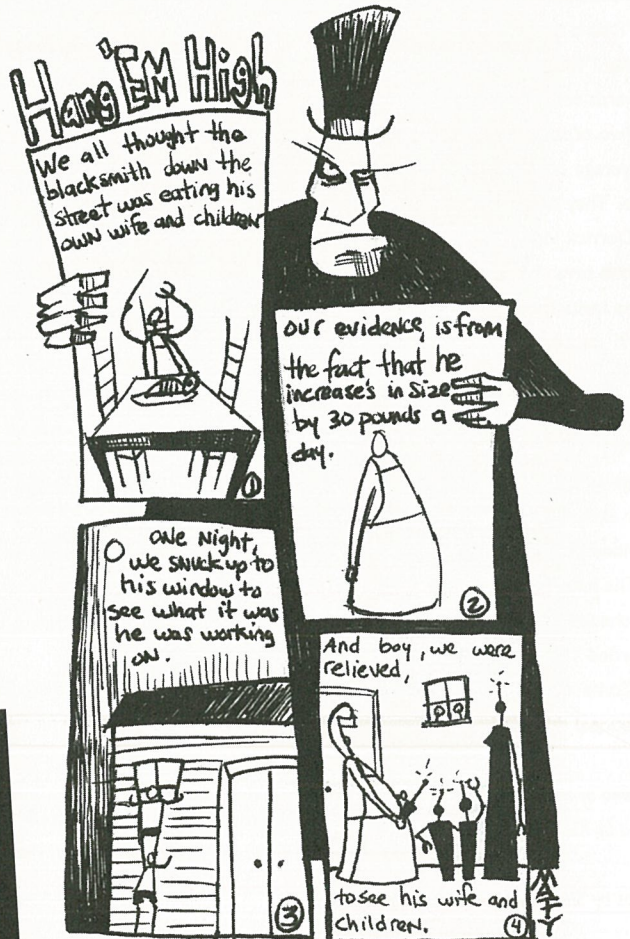 Hang 'EM High
We all thought the
blacksmith down the
street was eating his
own wife and children
①
our evidence, is from
the fact that he
increase's in size
by 30 pounds a
day.
②
One Night,
we snuck up to
his window to
see what it was
he was working
on.
③
And boy, we were
relieved,
to see his wife and
children.
④
MATTY